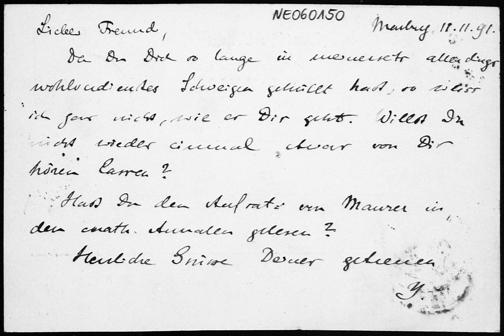 NE060A50
Lieber Freund, Marburg 18.11.91.
Da Du Dich so lange in meinerseits allerdings
wohlverdientes Schweigen gehüllt hast, so
ich gar nicht, wie es Dir geht. Willst Du
nicht wieder einmal etwas von Dir
hören lassen?
Hast Du den Aufsatz von Maurer in
den math. Annalen gelesen?
Herzliche Grüsse Deines getreuen